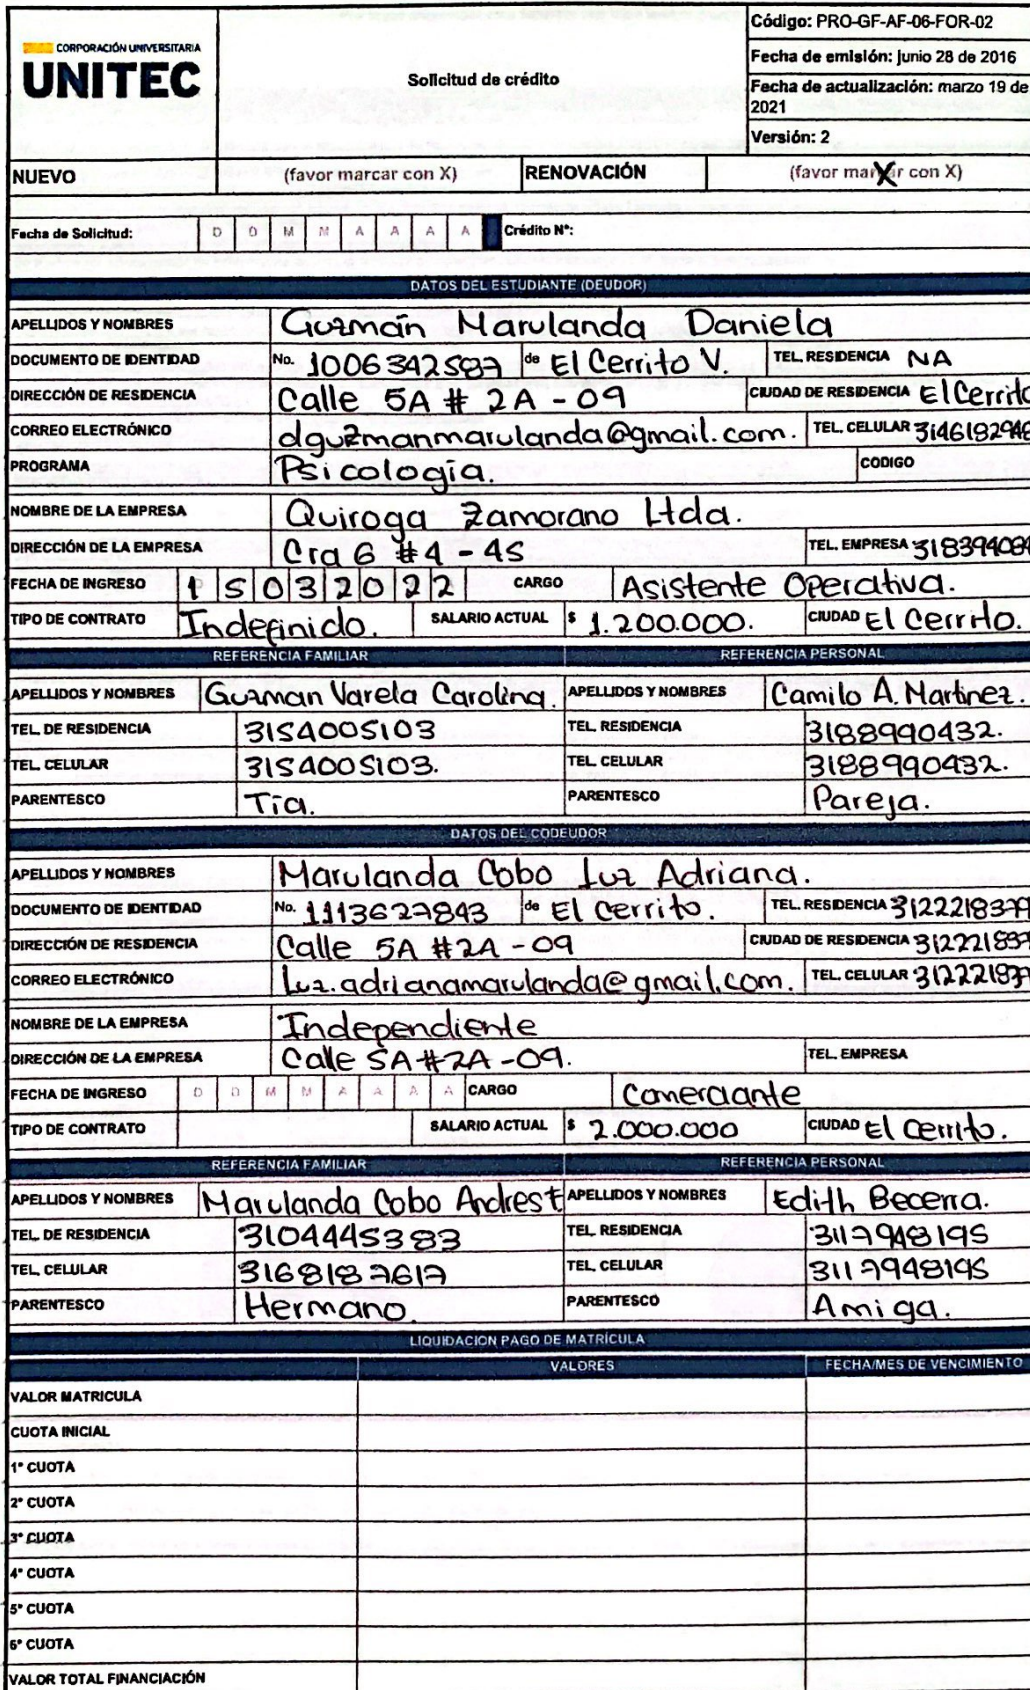 CORPORACIÓN UNIVERSITARIA
UNITEC
Solicitud de crédito
Código: PRO-GF-AF-06-FOR-02
Fecha de emisión: junio 28 de 2016
Fecha de actualización: marzo 19 de 2021
Versión: 2
NUEVO (favor marcar con X) RENOVACIÓN (favor marcar con X) X
Fecha de Solicitud: D D M M A A A A Crédito N°:
DATOS DEL ESTUDIANTE (DEUDOR)
APELLIDOS Y NOMBRES Guzmán Marulanda Daniela
DOCUMENTO DE IDENTIDAD No. 1006342587 de El Cerrito V. TEL. RESIDENCIA NA
DIRECCIÓN DE RESIDENCIA Calle 5A # 2A - 09 CIUDAD DE RESIDENCIA El Cerrito
CORREO ELECTRÓNICO dguzmanmarulanda@gmail.com. TEL. CELULAR 3146182946
PROGRAMA Psicología. CODIGO
NOMBRE DE LA EMPRESA Quiroga Zamorano Ltda.
DIRECCIÓN DE LA EMPRESA Cra 6 #4 - 45 TEL. EMPRESA
FECHA DE INGRESO 1 5 0 3 2 0 2 2 CARGO Asistente Operativa.
TIPO DE CONTRATO Indefinido. SALARIO ACTUAL $ 1.200.000. CIUDAD El Cerrito.
REFERENCIA FAMILIAR REFERENCIA PERSONAL
APELLIDOS Y NOMBRES Guzman Varela Carolina. APELLIDOS Y NOMBRES Camilo A. Martinez.
TEL. DE RESIDENCIA 3154005103 TEL. RESIDENCIA 3188990432.
TEL. CELULAR 3154005103. TEL. CELULAR 3188990432.
PARENTESCO Tía. PARENTESCO Pareja.
DATOS DEL CODEUDOR
APELLIDOS Y NOMBRES Marulanda Cobo Luz Adriana.
DOCUMENTO DE IDENTIDAD No. 1113627843 de El Cerrito. TEL. RESIDENCIA 3122218379
DIRECCIÓN DE RESIDENCIA Calle 5A #2A - 09 CIUDAD DE RESIDENCIA
CORREO ELECTRÓNICO luz.adrianamarulanda@gmail.com. TEL. CELULAR
NOMBRE DE LA EMPRESA Independiente
DIRECCIÓN DE LA EMPRESA Calle 5A #2A - 09. TEL. EMPRESA
FECHA DE INGRESO D D M M A A A A CARGO Comerciante
TIPO DE CONTRATO SALARIO ACTUAL $ 2.000.000 CIUDAD El Cerrito.
REFERENCIA FAMILIAR REFERENCIA PERSONAL
APELLIDOS Y NOMBRES Marulanda Cobo Andres F APELLIDOS Y NOMBRES Edith Becerra.
TEL. DE RESIDENCIA 3104445383 TEL. RESIDENCIA 3117948195
TEL. CELULAR 3168187617 TEL. CELULAR 3117948195
PARENTESCO Hermano. PARENTESCO Amiga.
LIQUIDACION PAGO DE MATRÍCULA
VALORES FECHA/MES DE VENCIMIENTO
VALOR MATRICULA
CUOTA INICIAL
1° CUOTA
2° CUOTA
3° CUOTA
4° CUOTA
5° CUOTA
6° CUOTA
VALOR TOTAL FINANCIACIÓN